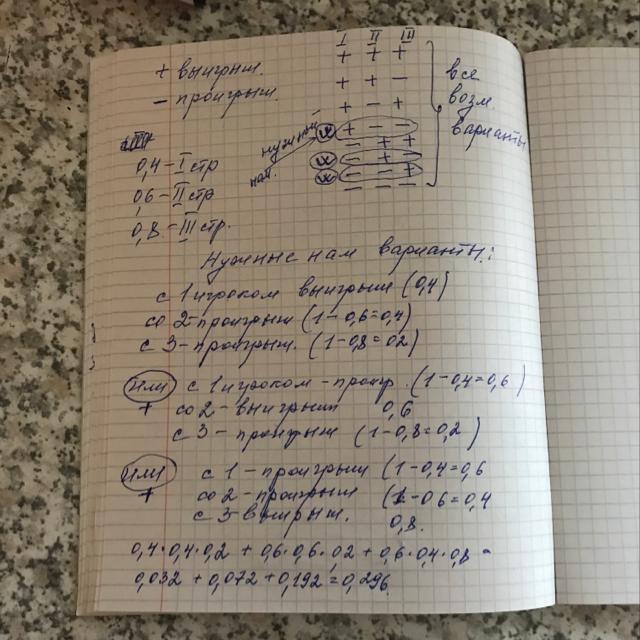 I II III
+ + +
+ выигрыш.
+ + –
– проигрыш.
+ – +
все
возм.
варианты
нужный
нам.
+ – –
– + +
– + –
– – +
– – –
0,4 – I стр
0,6 – II стр
0,8 – III стр.
Нужные нам варианты:
с 1 игроком выигрыш (0,4)
со 2 – проигрыш (1–0,6=0,4)
с 3 – проигрыш. (1–0,8=02)
или с 1 игроком – проигр. (1–0,4=0,6)
+ со 2 – выигрыш 0,6
с 3 – проигрыш (1–0,8=0,2)
или с 1 – проигрыш (1–0,4=0,6
+ со 2 – проигрыш (1–06=0,4
с 3 выигрыш. 0,8.
0,4·0,4·0,2 + 0,6·0,6·0,2 + 0,6·0,4·0,8 =
0,032 + 0,072 + 0,192 = 0,296